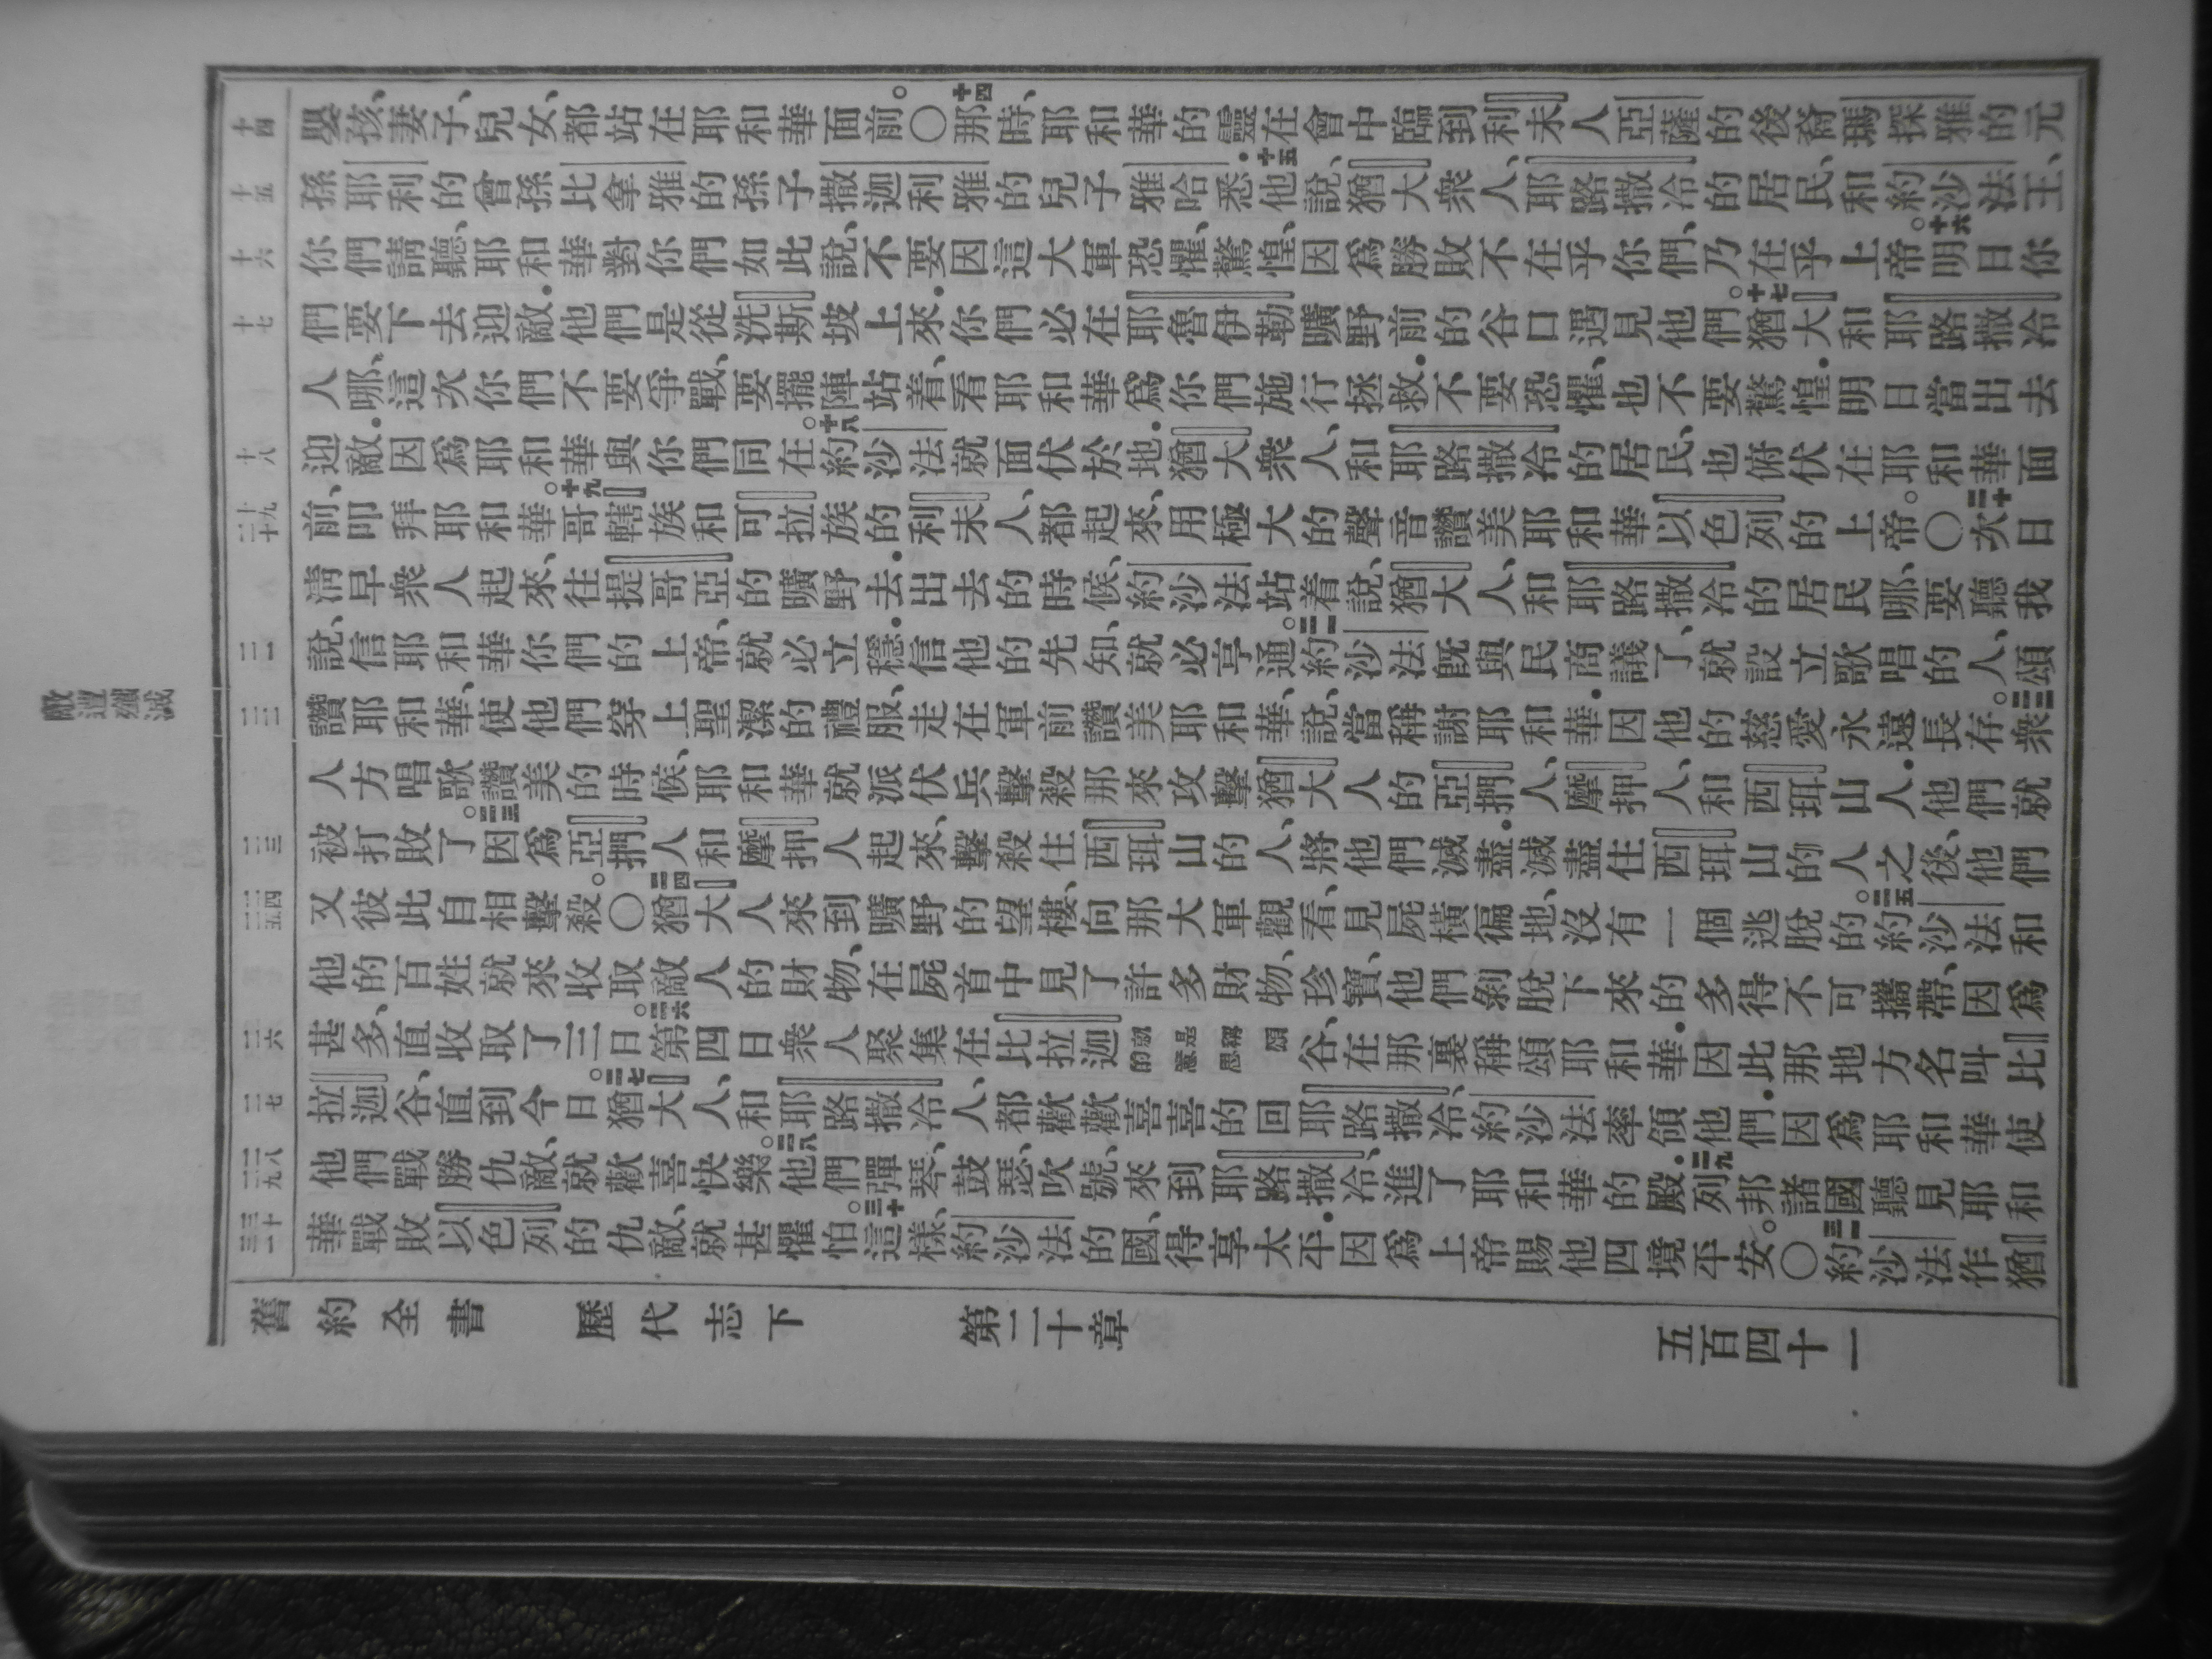 敵遭殲滅
十四
十五
十六
十七
十八
十九
二十
二一
二二
二三
二四
二五
二六
二七
二八
二九
三十
三一
嬰孩、妻子、兒女、都站在耶和華面前。〇十四那時、耶和華的靈在會中臨到利未人亞薩的後裔瑪探雅的元
孫耶利的曾孫比拿雅的孫子撒迦利雅的兒子雅哈悉.十五他說、猶大衆人、耶路撒冷的居民、和約沙法王、
你們請聽、耶和華對你們如此說、不要因這大軍恐懼、驚惶、因爲勝敗不在乎你們、乃在乎上帝。十六明日你
們要下去迎敵.他們是從洗斯坡上來.你們必在耶魯伊勒曠野前的谷口遇見他們。十七猶大和耶路撒冷
人哪、這次你們不要爭戰、要擺陣站着、看耶和華爲你們施行拯救.不要恐懼、也不要驚惶.明日當出去
迎敵.因爲耶和華與你們同在。十八約沙法就面伏於地.猶大衆人、和耶路撒冷的居民、也俯伏在耶和華面
前、叩拜耶和華。十九哥轄族和可拉族的利未人、都起來、用極大的聲音讚美耶和華以色列的上帝。〇二十次日
淸早衆人起來、往提哥亞的曠野去.出去的時候、約沙法站着說、猶大人、和耶路撒冷的居民哪、要聽我
說、信耶和華你們的上帝、就必立穩.信他的先知、就必亨通。二一約沙法旣與民商議了、就設立歌唱的人、頌
讚耶和華、使他們穿上聖潔的禮服、走在軍前讚美耶和華、說、當稱謝耶和華.因他的慈愛永遠長存。二二衆
人方唱歌讚美的時候、耶和華就派伏兵擊殺那來攻擊猶大人的亞捫人、摩押人、和西珥山人.他們就
被打敗了。二三因爲亞捫人和摩押人起來、擊殺住西珥山的人、將他們滅盡.滅盡住西珥山的人之後、他們
又彼此自相擊殺。〇二四猶大人來到曠野的望樓、向那大軍觀看、見屍橫徧地、沒有一個逃脫的。二五約沙法和
他的百姓就來收取敵人的財物、在屍首中見了許多財物、珍寶、他們剝脫下來的多得不可攜帶、因爲
甚多、直收取了三日。二六第四日衆人聚集在比拉迦就是稱頌的意思谷、在那裏稱頌耶和華.因此那地方名叫比
拉迦谷、直到今日。二七猶大人、和耶路撒冷人、都歡歡喜喜的回耶路撒冷、約沙法率領他們.因爲耶和華使
他們戰勝仇敵、就歡喜快樂。二八他們彈琴、鼓瑟、吹號、來到耶路撒冷、進了耶和華的殿.二九列邦諸國聽見耶和
華戰敗以色列的仇敵、就甚懼怕。三十這樣、約沙法的國、得享太平.因爲上帝賜他四境平安。〇三一約沙法作猶
舊約全書 歷代志下 第二十章 五百四十一